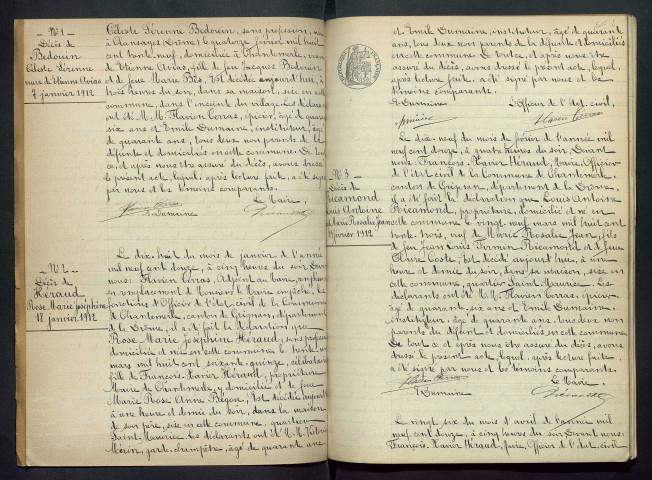 - N° 1 -
Décès de
Bedouin
Céleste Sérenne
veuve d'Etienne Arvias
7 janvier 1912
Céleste Sérenne Bedouin, sans profession, née
à Clansayes (Drôme) le quatorze février mil huit
cent trente neuf, domiciliée à Chantemerle, veuve
de Etienne Arvias, fille de feu Jacques Bedouin
et de feue Marie Brès, Est décédée aujourd'hui, à
trois heures du soir, dans sa maison, sise en cette
commune, dans l'enceint du village. Les déclarants
ont été M.M. Flavien Corras, épicier, âgé de quarante
six ans et Emile Dumaine, instituteur, âgé
de quarante ans, tous deux non parents de la
défunte et domiciliés en cette commune. De tout
ce, et après nous être assuré du décès, avons dressé
le présent acte, lequel, après lecture fait, a été signé
par nous et les témoins comparants.
Le Maire,
E. Dumaine
- N° 2 -
Décès de
Héraud
Rose Marie Joséphine
18 janvier 1912
Le dix huit du mois de janvier de l'année
mil neuf cent douze, à cinq heures du soir. Devant
nous: Flavien Corras, Adjoint au Maire, remplissant
en remplacement de Monsieur le Maire empêché, les
fonctions d'Officier de l'état civil de la Commune
de Chantemerle, canton de Grignan, département
de la Drôme, il a été fait la déclaration que
Rose Marie Joséphine Héraud, sans profession
domiciliée et née en cette commune le trente un
mars mil huit cent soixante quinze, célibataire
fille de François Xavier Héraud, propriétaire
Maire de Chantemerle, y domicilié et de feue
Marie Rose Anne Bégou, Est décédée aujourd'hui
à une heure et demie du soir, dans la maison
de son père, sise en cette commune, quartier
Saint-Maurice. Les déclarants ont été M.M. Victorin
Morin, garde-champêtre, âgé de quarante ans
et Emile Dumaine, instituteur, âgé de quarante
ans, tous deux non parents de la défunte et domiciliés
en cette commune. De tout ce, et après nous être
assuré du décès, avons dressé le présent acte, lequel,
après lecture fait, a été signé par nous et les
témoins comparants.
E. Dumaine
L'Officier de l'état civil,
Flavien Corras
N° 3
Décès de
Ricamond
Louis Antoine
veuf Marie Rosalie Jean
19 février 1912
Le dix neuf du mois de février de l'année mil
neuf cent douze, à quatre heures du soir. Devant
nous: François Xavier Héraud, Maire, Officier
de l'état civil de la Commune de Chantemerle
canton de Grignan, département de la Drôme,
il a été fait la déclaration que Louis Antoine
Ricamond, propriétaire, domicilié et né en
cette commune le vingt mars mil huit cent
trente trois, veuf de Marie Rosalie Jean, fils
de feu Jean Louis Firmin Ricamond et de feue
Claire Coste, Est décédé aujourd'hui, à une
heure et demie du soir, dans sa maison, sise en
cette commune, quartier Saint-Maurice. Les
déclarants ont été M.M. Flavien Corras, épicier
âgé de quarante six ans et Emile Dumaine,
instituteur, âgé de quarante ans, tous deux non
parents du défunt et domiciliés en cette commune.
De tout ce et après nous être assuré du décès, avons
dressé le présent acte, lequel, après lecture faite,
a été signé par nous et les témoins comparants.
Flavien Corras
Le Maire,
E. Dumaine
Le vingt six du mois d'avril de l'année mil
neuf cent douze, à cinq heures du soir. Devant nous:
François Xavier Héraud, Maire, Officier de l'état civil